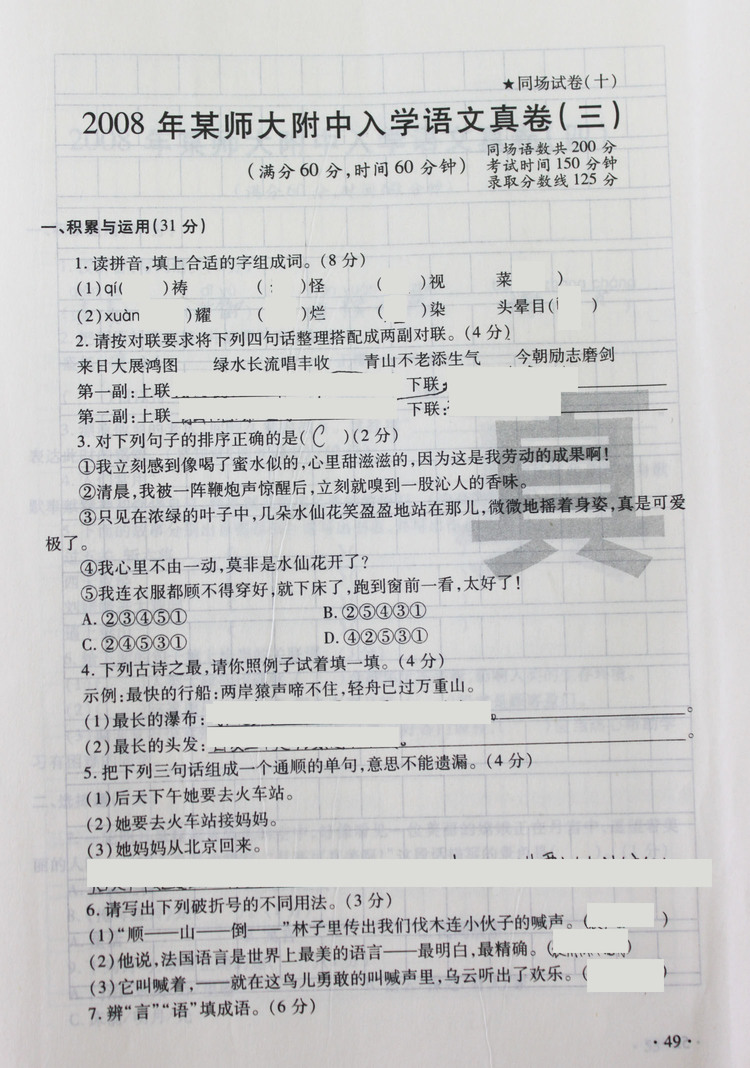 ★同场试卷(十)
2008年某师大附中入学语文真卷(三)
(满分60分,时间60分钟)
同场语数共200分
考试时间150分钟
录取分数线125分
一、积累与运用(31分)
1.读拼音,填上合适的字组成词。(8分)
(1)qí( )祷 ( )怪 ( )视 菜 )
(2)xuàn )耀 ( )烂 ( )染 头晕目( )
2.请按对联要求将下列四句话整理搭配成两副对联。(4分)
来日大展鸿图 绿水长流唱丰收 青山不老添生气 今朝励志磨剑
第一副:上联 下联:
第二副:上联 下联:
3.对下列句子的排序正确的是( C )(2分)
①我立刻感到像喝了蜜水似的,心里甜滋滋的,因为这是我劳动的成果啊!
②清晨,我被一阵鞭炮声惊醒后,立刻就嗅到一股沁人的香味。
③只见在浓绿的叶子中,几朵水仙花笑盈盈地站在那儿,微微地摇着身姿,真是可爱
极了。
④我心里不由一动,莫非是水仙花开了?
⑤我连衣服都顾不得穿好,就下床了,跑到窗前一看,太好了!
A.②③④⑤① B.②⑤④③①
C.②④⑤③① D.④②⑤③①
4.下列古诗之最,请你照例子试着填一填。(4分)
示例:最快的行船:两岸猿声啼不住,轻舟已过万重山。
(1)最长的瀑布: 。
(2)最长的头发: 。
5.把下列三句话组成一个通顺的单句,意思不能遗漏。(4分)
(1)后天下午她要去火车站。
(2)她要去火车站接妈妈。
(3)她妈妈从北京回来。
6.请写出下列破折号的不同用法。(3分)
(1)“顺——山——倒——”林子里传出我们伐木连小伙子的喊声。( )
(2)他说,法国语言是世界上最美的语言——最明白,最精确。( )
(3)它叫喊着,——就在这鸟儿勇敢的叫喊声里,乌云听出了欢乐。( )
7.辨“言”“语”填成语。(6分)
·49·
真